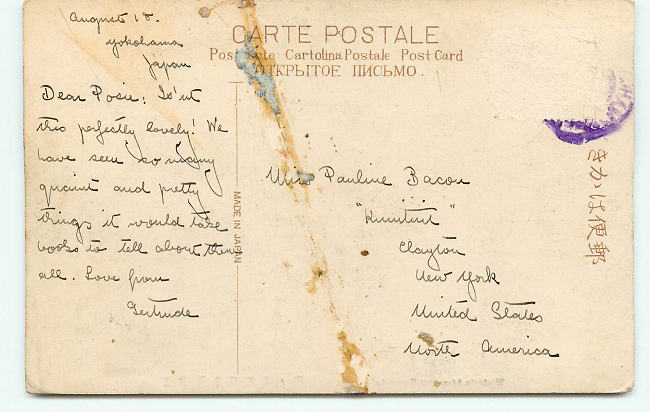 August 18.
Yokohama
Japan
Dear Posie: Is'nt
this perfectly lovely! We
have seen so many
quaint and pretty
things it would take
books to tell about them
all. Love from
Gertrude
CARTE POSTALE
Postkarte Cartolina Postale Post Card
ОТКРЫТОЕ ПИСЬМО.
MADE IN JAPAN
Miss Pauline Bacon
Clayton
New York
United States
North America
きかは便郵